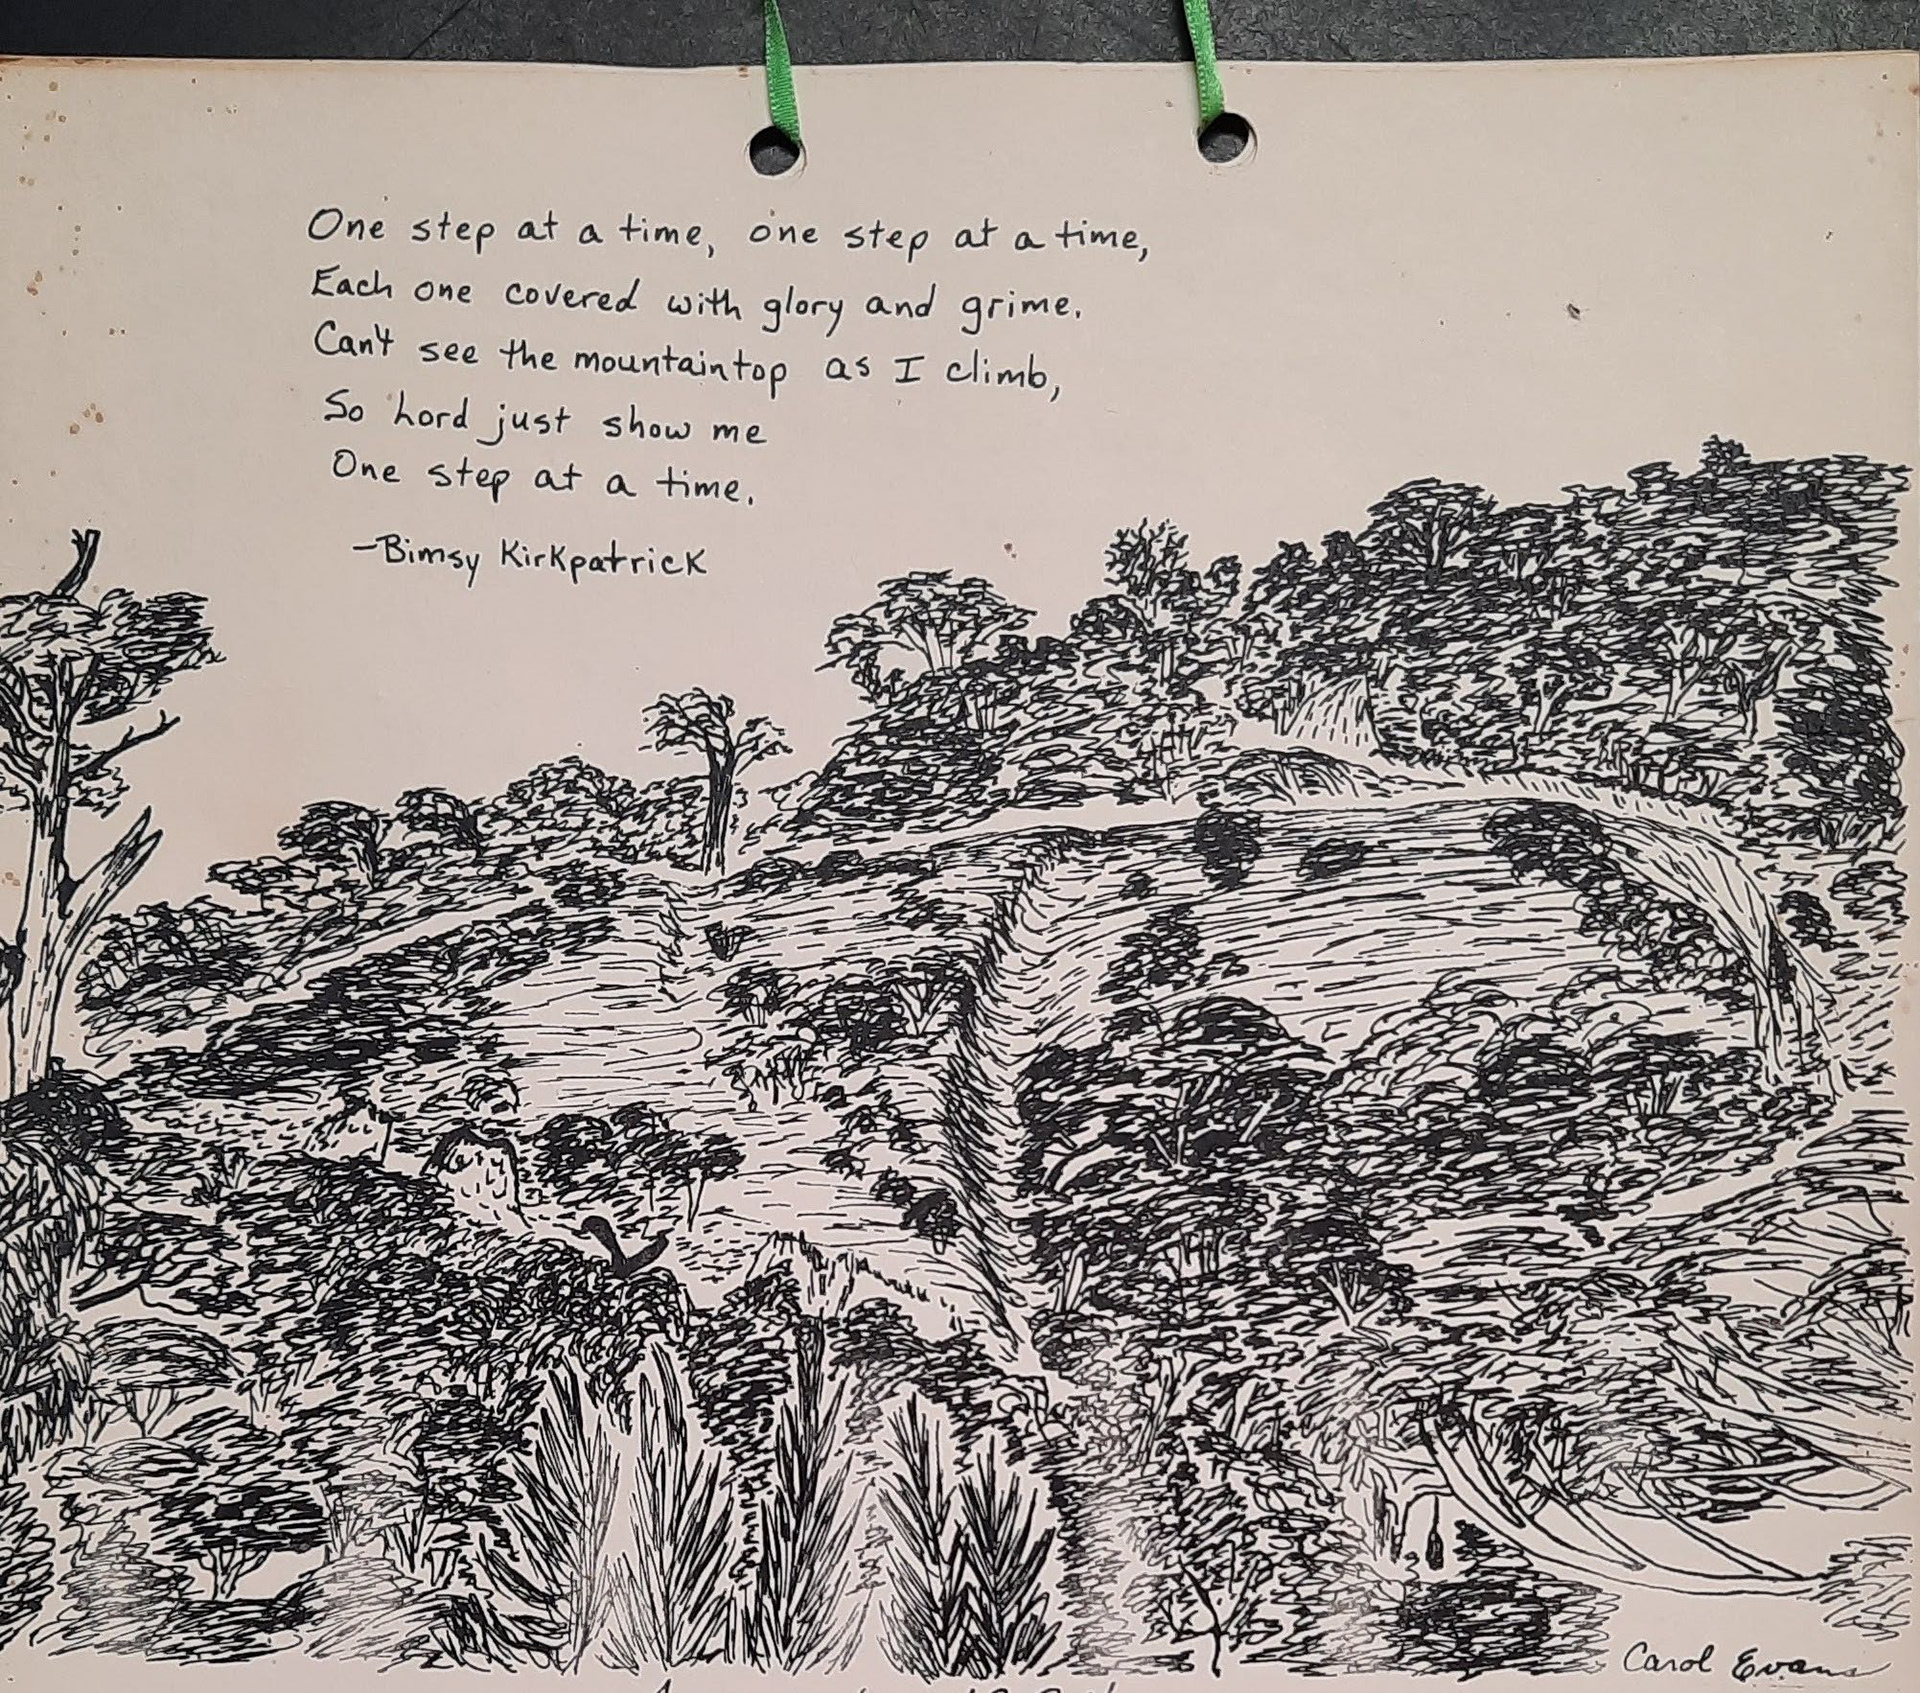 One step at a time, one step at a time,
Each one covered with glory and grime.
Can't see the mountaintop as I climb,
So Lord just show me
One step at a time.
-Bimsy Kirkpatrick
Carol Evans